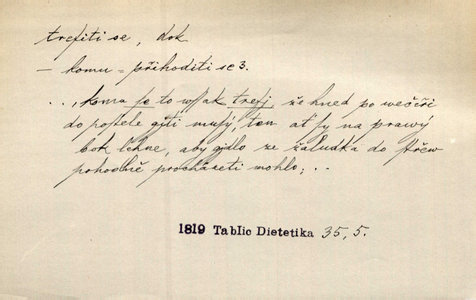 trefiti se, dok
– komu = přihoditi se 3.
..., komu se to wssak trefj, že hned po wečeři
do postele gjti musý, ten ať sy na prawý
bok lehne, aby gjdlo ze žaludka do střew
pohodlně procházeti mohlo; ..
1819 Tablic Dietetika 35, 5.